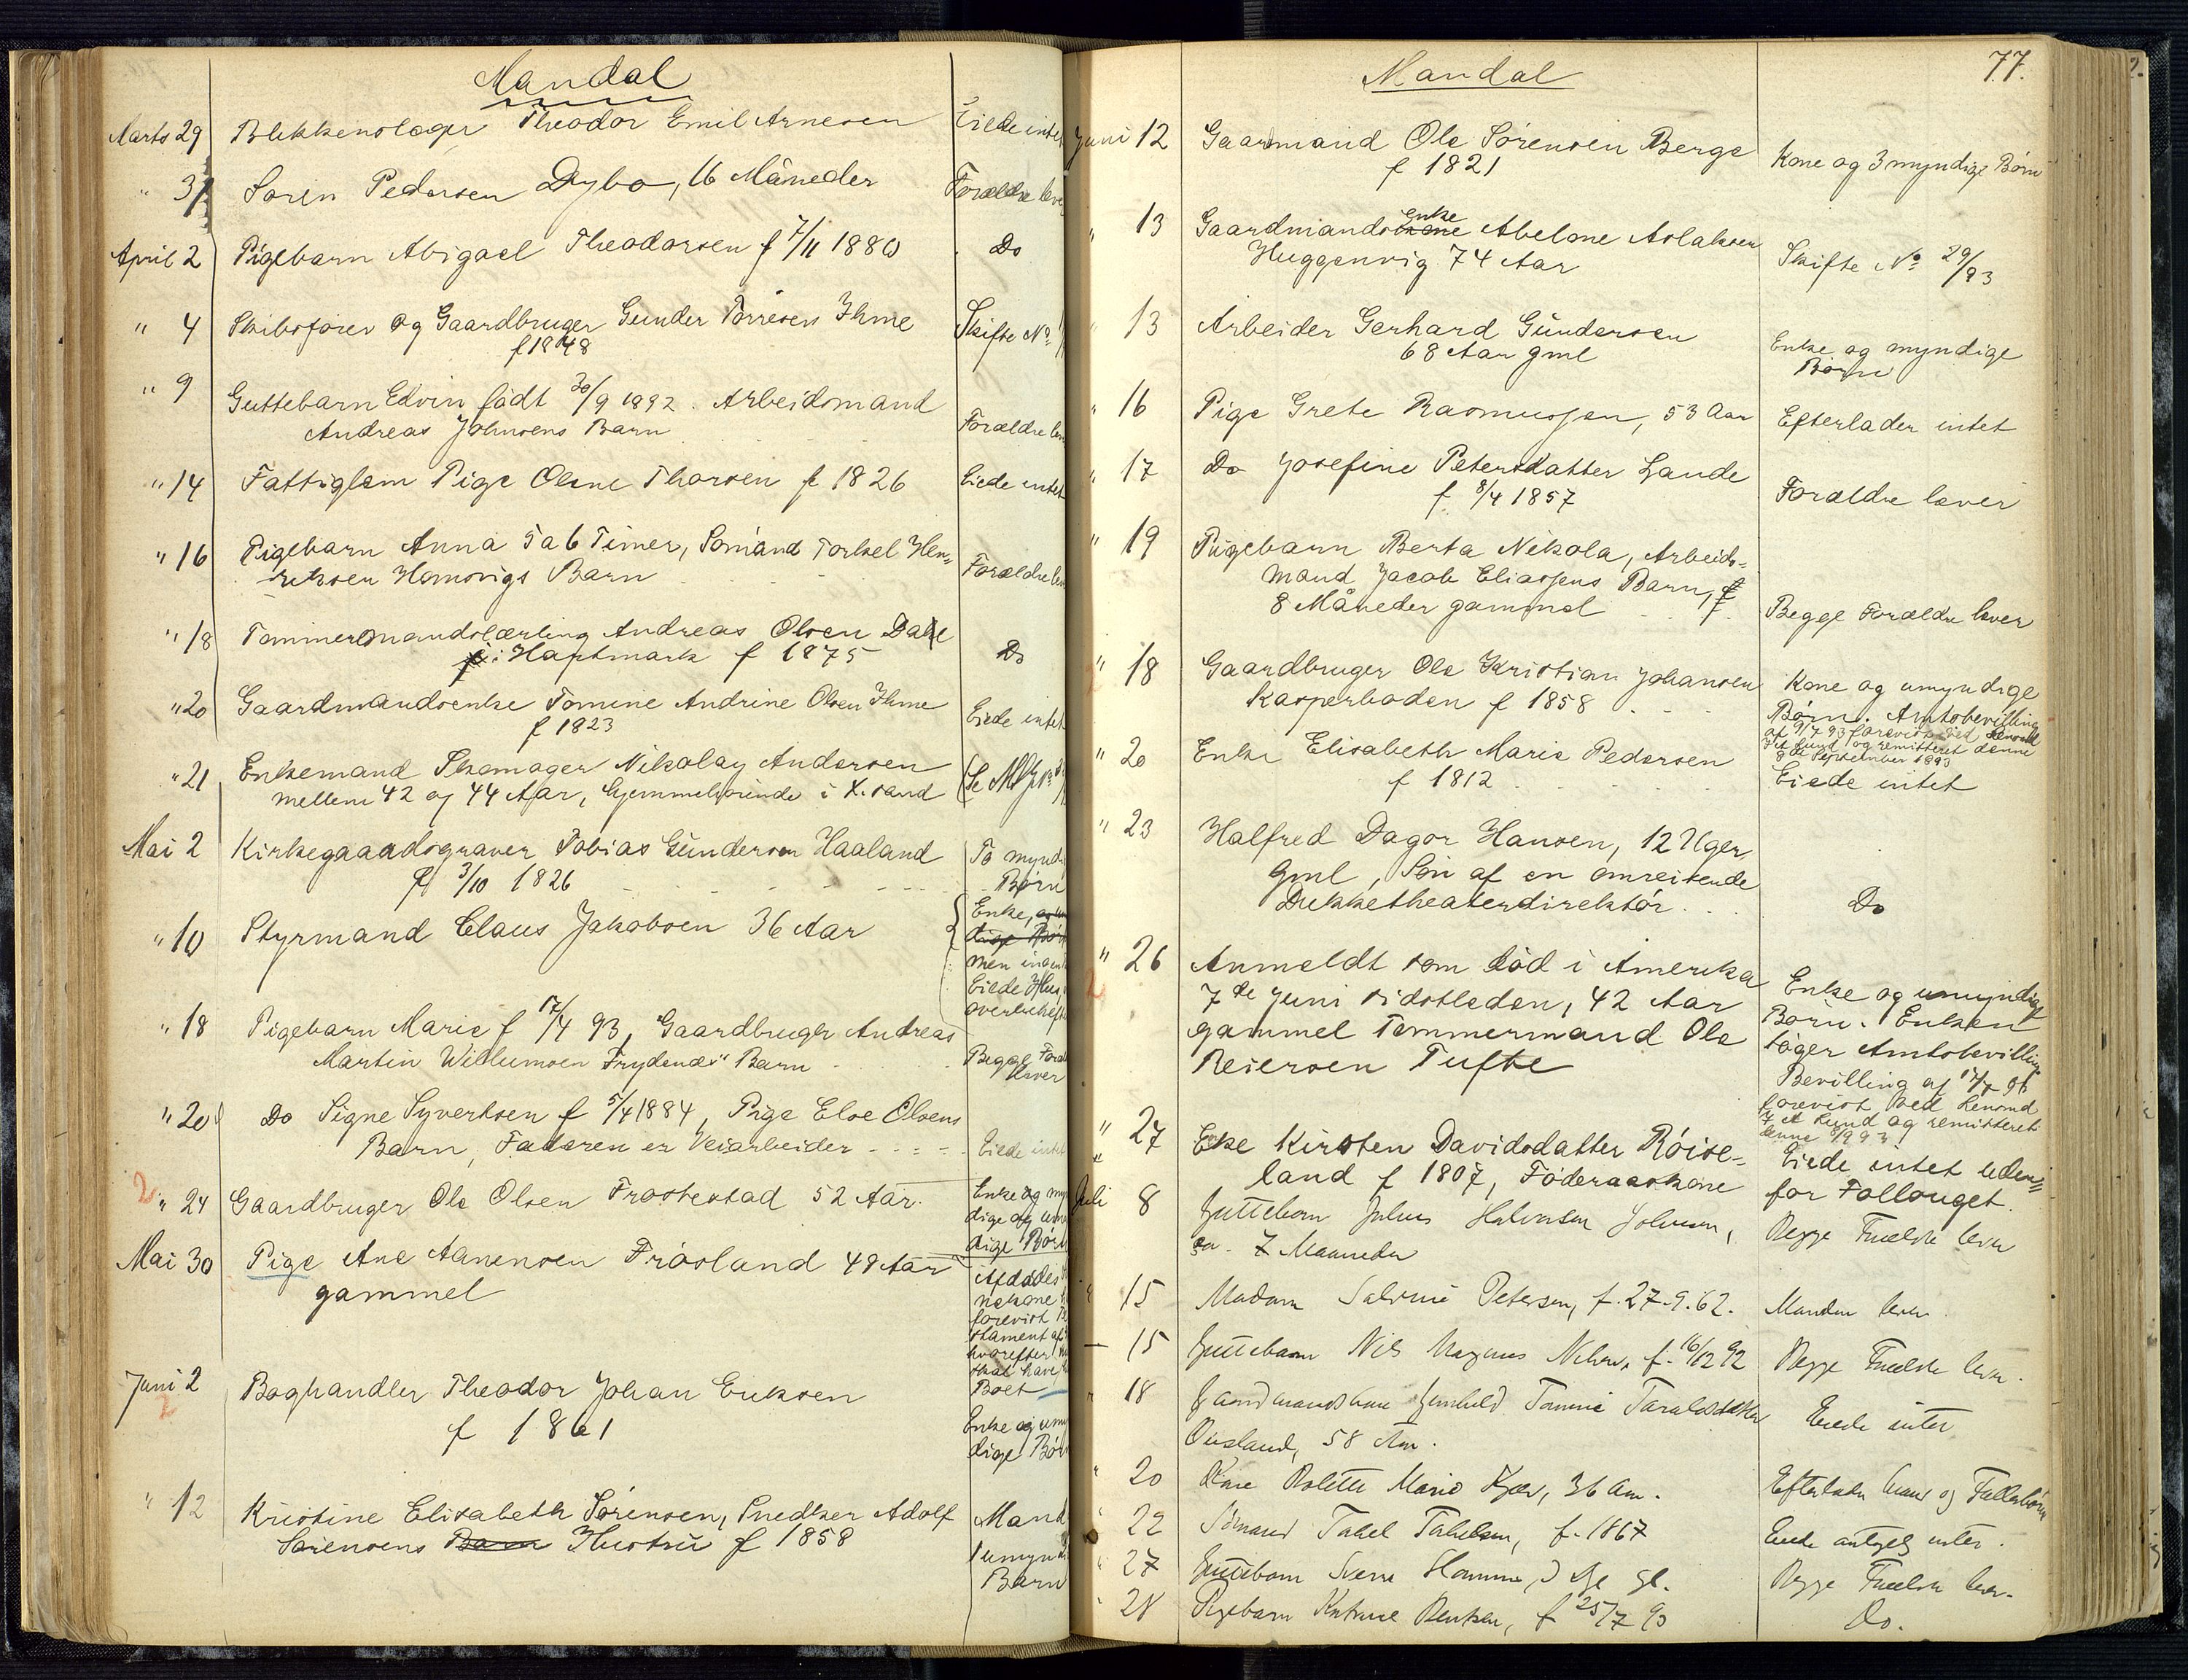 Mandal
Marts 29 Blikkenslager Theodor Emil Arnesen Eiede intet
" 31 Sören Pedersen Dybo, 16 Måneder Forældre leve
April 2 Pigebarn Abigael Theodorsen f 7/11 1880 Do
" 4 Skibsfører og Gaardbruger Gunder Tørresen Ihme Skifte No.
f 1848
" 9 Guttebarn Edvin født 30/9 1892. Arbeidsmand
Andreas Johnsens Barn Forældre lev
" 14 Fattiglem Pige Olene Thorsen f 1826 Eiede intet
" 16 Pigebarn Anna 5 a 6 Timer, Sømand Torkel Hen-
riksen Homsvigs Barn Forældre lev
" 18 Tømmermandslærling Andreas Olsen Dale
i Hartmark f 1875 Do
" 20 Gaardmandsenke Tomine Andrine Olsen Ihme
f 1823 Eiede intet
" 21 Enkemand Skomager Nikolay Andersen
mellem 42 og 44 Aar, hjemmehørende i K.sand (Se
Mai 2 Kirkegaardsgraver Tobias Gundersen Haaland To mynd
f 3/10 1826 Børn
" 10 Styrmand Claus Jakobsen 36 Aar Enke,
men
Eiede Hus
overbehefte
" 18 Pigebarn Marie f 17/4 93, Gaardbruger Andreas
Martin Willumsen "Frydenæs" Barn Begge Foræ
lever
" 20 Do Signe Syvertsen f 5/4 1884, Pige Else Olsens
Barn, Faderen er Veiarbeider Eiede intet
2 " 24 Gaardbruger Ole Olsen Frostestad 52 Aar. Enke og myn
dige og umyn
dige Børn
Mai 30 Pige Ane Aanensen Frøsland 48 Aar
gammel
Afdødes
forevist Te
stament af
hvorefter
skal have
Boet
Juni 2 Boghandler Theodor Johan Eriksen
2
f 1861 Enke og umyn
dige Børn
" 12 Kristine Elisabeth Sørensen, Snedker Adolf Mand
Sørensens Barn Hustru f 1858 1 umyndi
Barn
77.
Mandal
Juni 12 Gaardmand Ole Sørensen Berge
f 1821 Kone og 3 myndige Børn
" 13 Gaardmandskone Enke Abelone Aslaksen
Huggenvig 74 Aar Skifte No. 29/93
" 13 Arbeider Gerhard Gundersen
68 Aar gml Enke og myndige
Børn
" 16 Pige Grete Rasmussen, 53 Aar Efterlader intet
" 17 Do Josefine Petersdatter Lande
f. 8/4 1857 Forældre lever
" 19 Pigebarn Berta Nikola, Arbeids-
mand Jacob Eliassens Barn, f
8 Måneder gammel Begge Forældre lever
" 18 Gaardbruger Ole Kristian Johansen
Kasperboden f 1858 Kone og umyndige
Børn. Amtsbevilling
af 9/7 93 forevist
og remitteret denne
8de September 1893
" 20 Enke Elisabeth Marie Pedersen
f 1812 Eiede intet
" 23 Halfred Dagor Hansen, 12 Uger
gml, Søn af en omreisende
Dukketheaterdirektør Do
" 26 Anmeldt som død i Amerika
2
7de Juni sidstleden, 42 Aar
gammel Tømmermand Ole
Reiersen Tufte
Enke og umyndige
Børn. Enken
søger Amtsbevilling
Bevilling af 17/7 93
forevist ved
og remitteret
denne 8/9 93
" 27 Enke Kirsten Davidsdatter Røise-
land f 1807, Føderaadskone
Eiede intet uden-
for Følloget.
Juli 8 Guttebarn Julius Halvorsen Johnsen,
ca. 7 Maaneder Begge Forældre lever
" 15 Madam Salvine Petersen, f. 27-9.62. Manden lever.
— 15 Guttebarn Nils Magnus Nilsen, f. 16/12 92 Begge Forældre lever.
" 18 Gaardmandskone Gunhild Tomine Taraldsdatter
Øusland, 58 Aar. Eiede intet
" 20 Kone Rolette Marie Kjær, 36 Aar. Efterlader Mand og Fællesbørn
" 22 Sømand Tahel Tahelsen, f. 1867 Eiede antagelig intet.
" 27 Guttebarn Sverre Homme, gl. Begge Forældre lever.
" 28 Pigebarn Katrine Bentsen, f 25/7 93 Do.